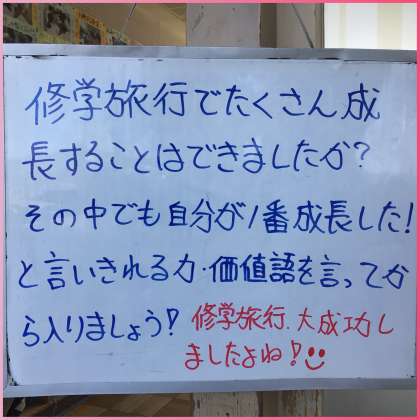 修学旅行でたくさん成
長することはできましたか?
その中でも自分が1番成長した!
と言いきれる力・価値語を言ってか
ら入りましょう!
修学旅行、大成功し
ましたよね!